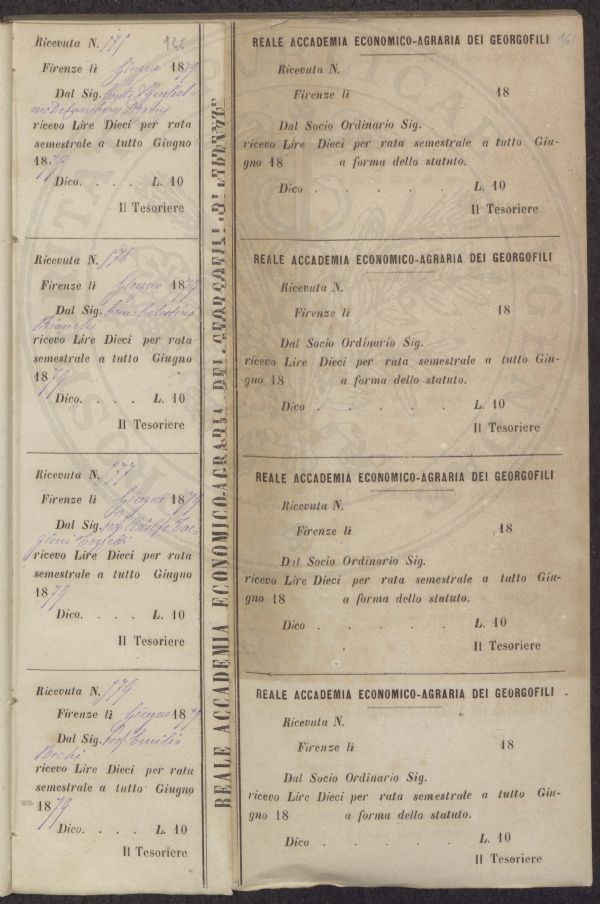 Ricevuta N. 175 166
Firenze lì Giugno 1879
Dal Sig. Conte
ricevo Lire Dieci per rata
semestrale a tutto Giugno
1879
Dico. . . . L. 10
Il Tesoriere
Ricevuta N. 176
Firenze lì Giugno 1879
Dal Sig. Com. Celestino
Bianchi
ricevo Lire Dieci per rata
semestrale a tutto Giugno
1879
Dico. . . . L. 10
Il Tesoriere
Ricevuta N. 177
Firenze lì Giugno 1879
Dal Sig. Adolfo Tar
gioni Tozzetti
ricevo Lire Dieci per rata
semestrale a tutto Giugno
1879
Dico. . . . L. 10
Il Tesoriere
Ricevuta N.
Firenze lì Giugno 1879
Dal Sig. Prof Emilio
Bechi
ricevo Lire Dieci per rata
semestrale a tutto Giugno
1879
Dico. . . . L. 10
Il Tesoriere
REALE ACCADEMIA ECONOMICO-AGRARIA DEI GEORGOFILI DI FIRENZE
REALE ACCADEMIA ECONOMICO-AGRARIA DEI GEORGOFILI
Ricevuta N.
Firenze lì 18
Dal Socio Ordinario Sig.
ricevo Lire Dieci per rata semestrale a tutto Giu-
gno 18 a forma dello statuto.
Dico . . . . L. 10
Il Tesoriere
REALE ACCADEMIA ECONOMICO-AGRARIA DEI GEORGOFILI
Ricevuta N.
Firenze lì 18
Dal Socio Ordinario Sig.
ricevo Lire Dieci per rata semestrale a tutto Giu-
gno 18 a forma dello statuto.
Dico . . . . L. 10
Il Tesoriere
REALE ACCADEMIA ECONOMICO-AGRARIA DEI GEORGOFILI
Ricevuta N.
Firenze lì 18
Dal Socio Ordinario Sig.
ricevo Lire Dieci per rata semestrale a tutto Giu-
gno 18 a forma dello statuto.
Dico . . . . L. 10
Il Tesoriere
REALE ACCADEMIA ECONOMICO-AGRARIA DEI GEORGOFILI
Ricevuta N.
Firenze lì 18
Dal Socio Ordinario Sig.
ricevo Lire Dieci per rata semestrale a tutto Giu-
gno 18 a forma dello statuto.
Dico . . . . L. 10
Il Tesoriere